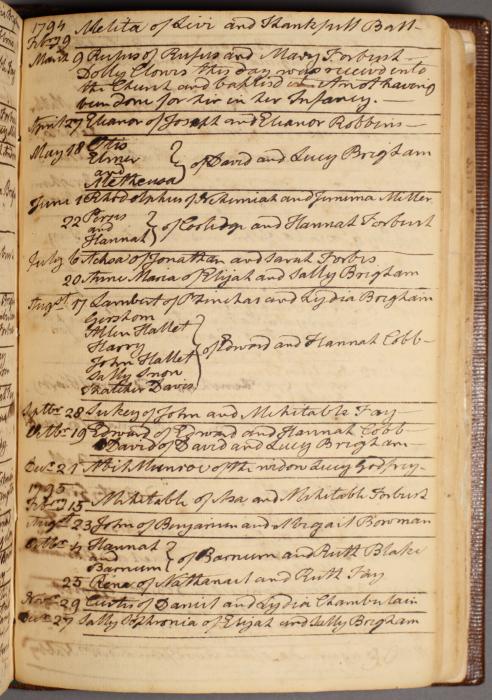 1794
Febry 9 Melita of Livi and Thankfull Ball
March 9 Rufus of Rufus and Mary Forbush
Dolly Clows this day was received into
the Church and baptised it not having
been done for her in her Infancy.
April 27 Eleanor of Joseph and Eleanor Robbins
May 18 Otis
Elmer
and
Metheusa } of David and Lucy Brigham
June 1 Rhodolphus of Nehemiah and Jemima Miller
22 Persis
and
Hannah } of Coolidge and Hannah Forbush
July 6 Achsa of Jonathan and Sarah Forbes
20 Anne Maria of Elijah and Sally Brigham
Augst 17 Lambert of Phinehas and Lydia Brigham
Gershom
Allen Hallet
Harry
John Hallet
Sally Snow
Thatcher Davis } of Edward and Hannah Cobb
Septbr 28 Sukey of John and Mehitable Fay
Octbr 19 Edward of Edward and Hannah Cobb
David of David and Lucy Brigham
Decr 21 Abil Munroe of the widow Lucy Godfrey
1795
Febry 15 Mehitable of Asa and Mehitable Forbush
Augst 23 John of Benjamin and Abigail Bowman
Octbr 11 Hannah
and
Barnum } of Barnum and Ruth Blake
25 Rene of Nathaniel and Ruth Fay
Novr 29 Curtis of Daniel and Lydia Chamberlain
Decr 27 Sally Sophronia of Elijah and Sally Brigham